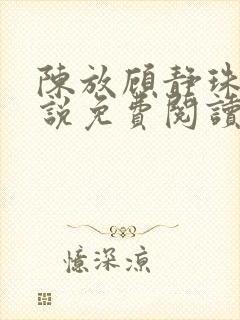 陳放顾靜珠
說免費閱讀
憶深凉